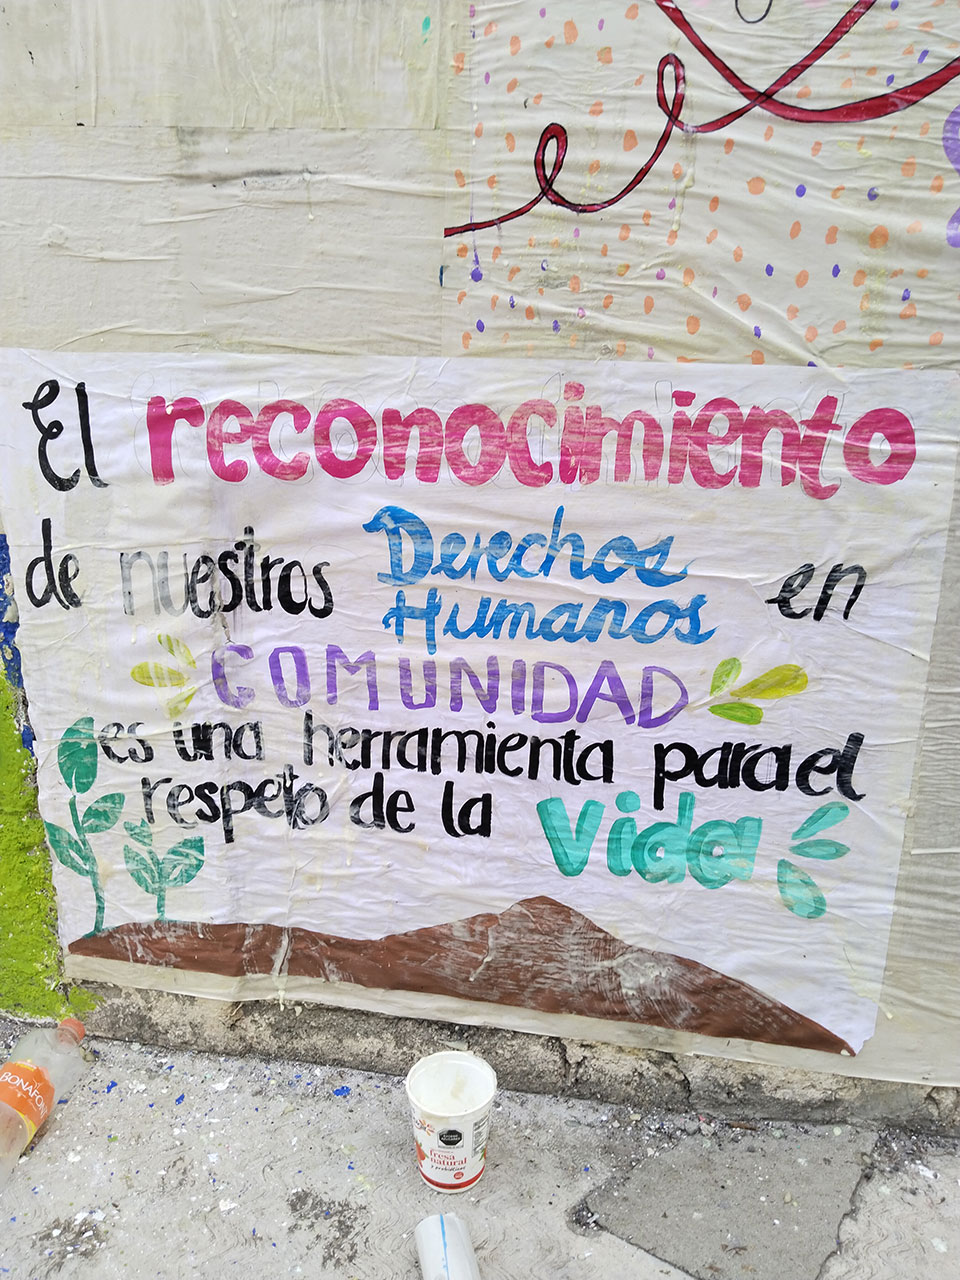 El reconocimiento
de nuestros Derechos Humanos en
COMUNIDAD
es una herramienta para el
respeto de la Vida
BONAFONT
fresa
natural
y probióticos